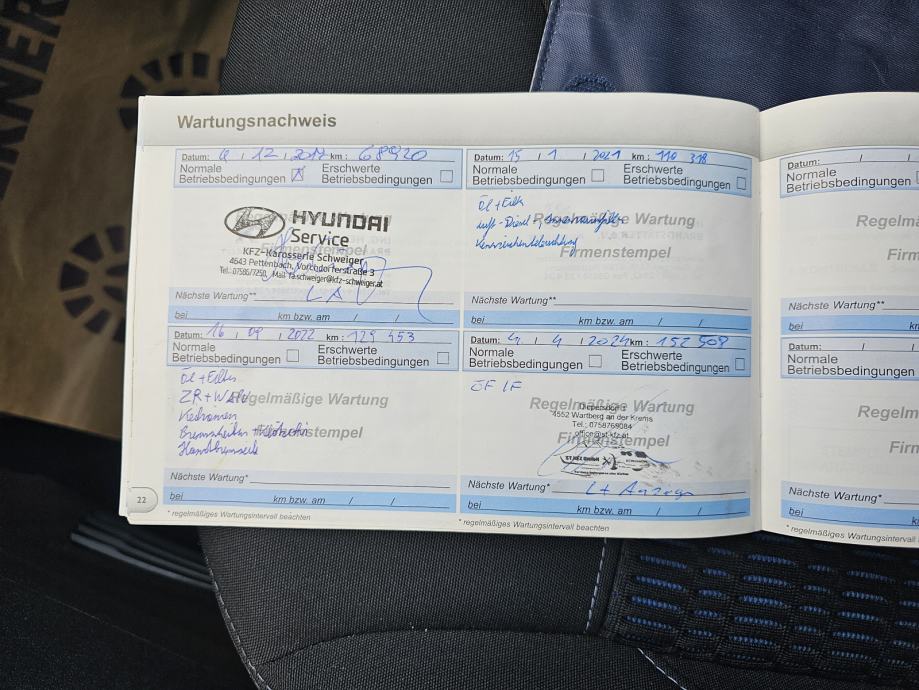 Wartungsnachweis
Datum: 4 / 12 / 2017 km: 68920
Normale Betriebsbedingungen
Erschwerte Betriebsbedingungen
HYUNDAI
Service
KFZ-Karosserie Schweiger
4643 Pettenbach, Vorchdorferstraße 3
Tel.: 07586/7250, Mail
Firmenstempel
Nächste Wartung**
bei km bzw. am / /
Datum: 15 / 1 / 2021 km: 110 318
Normale Betriebsbedingungen
Erschwerte Betriebsbedingungen
Öl + Filter
Regelmäßige Wartung
Firmenstempel
Kennzeichenbeleuchtung
Nächste Wartung**
bei km bzw. am / /
Datum: 16 / 09 / 2022 km: 129 453
Normale Betriebsbedingungen
Erschwerte Betriebsbedingungen
Öl + Filter
ZR + WAPU
Regelmäßige Wartung
Keilriemen
Firmenstempel
Handbremsseile
Nächste Wartung*
bei km bzw. am / /
* regelmäßiges Wartungsintervall beachten
Datum: 4 / 4 / 2024 km: 152 508
Normale Betriebsbedingungen
Erschwerte Betriebsbedingungen
Regelmäßige Wartung
4552 Wartberg an der Krems
Tel.: 0758769084
office@st-kfz.at
Firmenstempel
Nächste Wartung*
Lt Anzeige
bei km bzw. am / /
* regelmäßiges Wartungsintervall beachten
22
Datum: / /
Normale
Betriebsbedingungen
Regelm
Firm
Nächste Wartung**
bei
Datum: / /
Normale
Betriebsbedingungen
Regelm
Firm
Nächste Wartung*
bei
* regelmäßiges Wartungsintervall